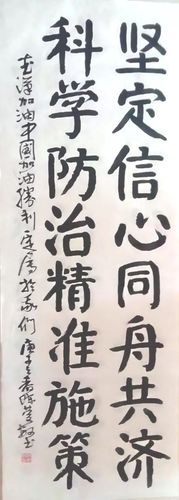 坚定信心同舟共济
科学防治精准施策
武漢加油中國加油勝利定属於我們 庚子春陈